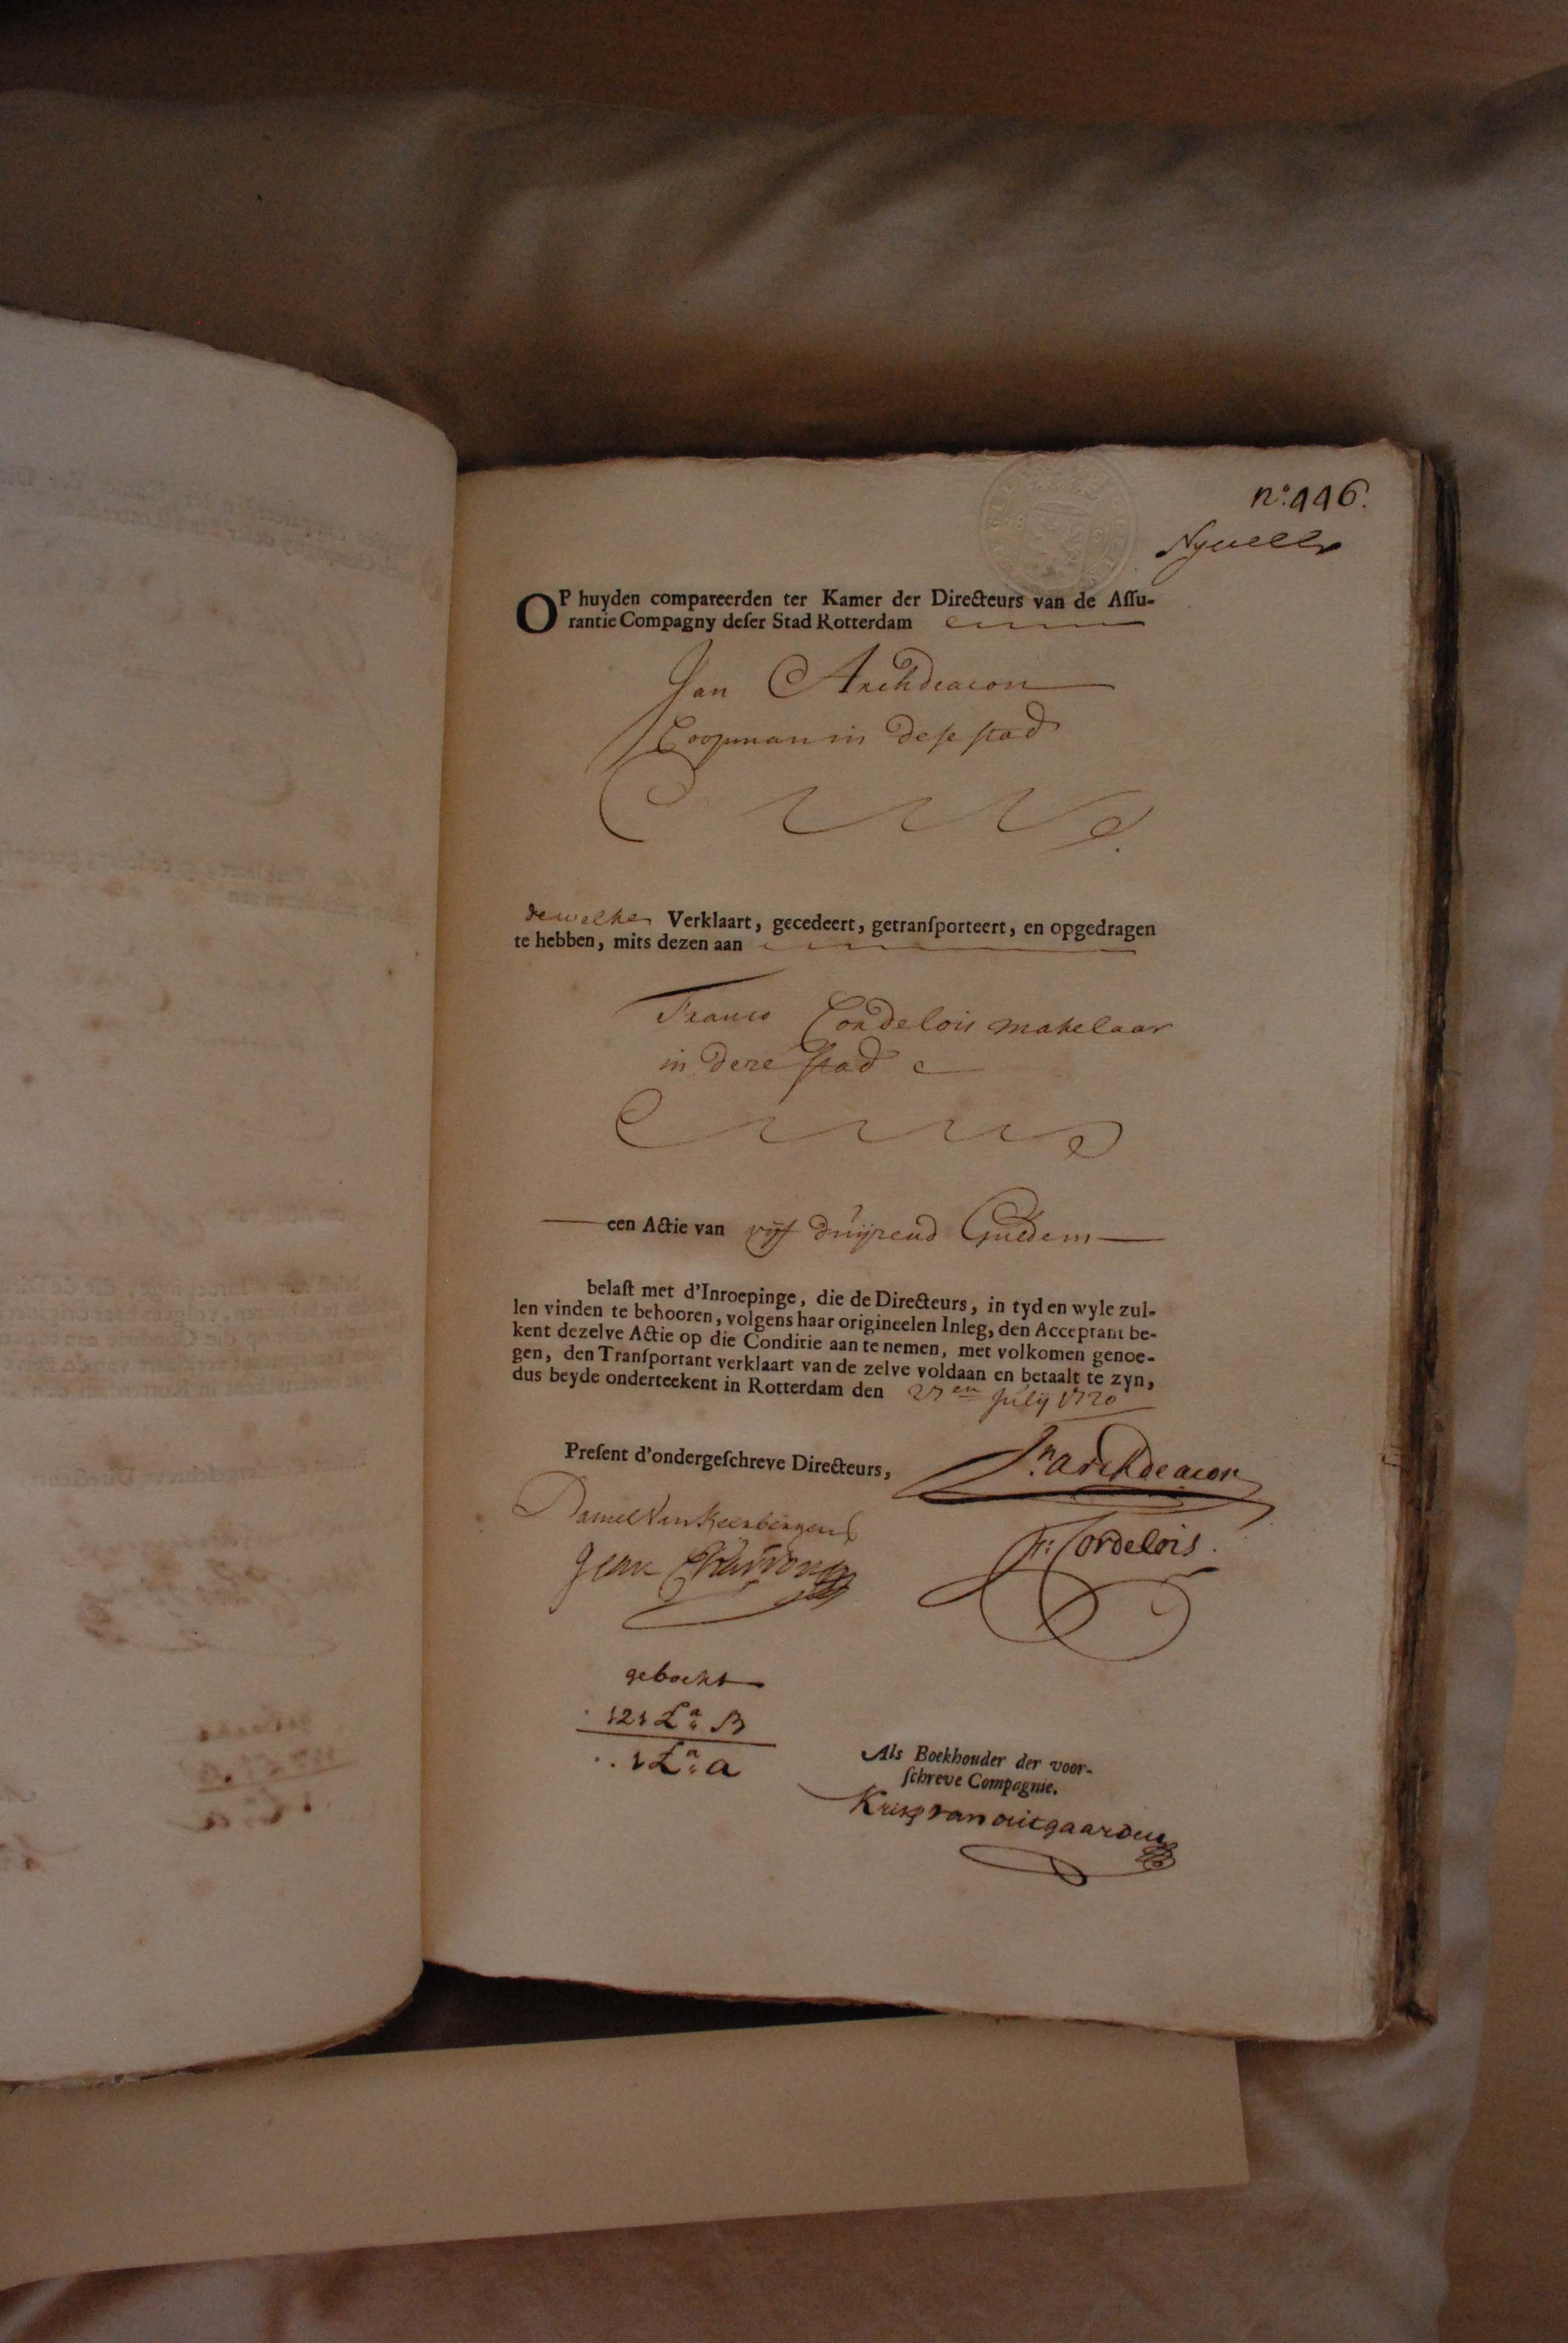 nº. 446.
OP huyden compareerden ter Kamer der Directeurs van de Aſſu-
rantie Compagny deſer Stad Rotterdam
Jan Archdeacon
Coopman in deſe ſtad
dewelke Verklaart, gecedeert, getranſporteert, en opgedragen
te hebben, mits dezen aan
Franco Cordelois makelaar
in deze ſtad
een Actie van vijf duijzend Guldens
belaſt met d'Inroepinge, die de Directeurs, in tyd en wyle zul-
len vinden te behooren, volgens haar origineelen Inleg, den Acceptant be-
kent dezelve Actie op die Conditie aan te nemen, met volkomen genoe-
gen, den Tranſportant verklaart van de zelve voldaan en betaalt te zyn,
dus beyde onderteekent in Rotterdam den 27en Julij 1720
Preſent d'ondergeſchreve Directeurs,
Jn. Archdeacon
Daniel Van Keerbergen
F: Cordelois.
Jean Charron
geboekt
121 La: B
1 La: a
Als Boekhouder der voor-
ſchreve Compagnie.
van outgaarden